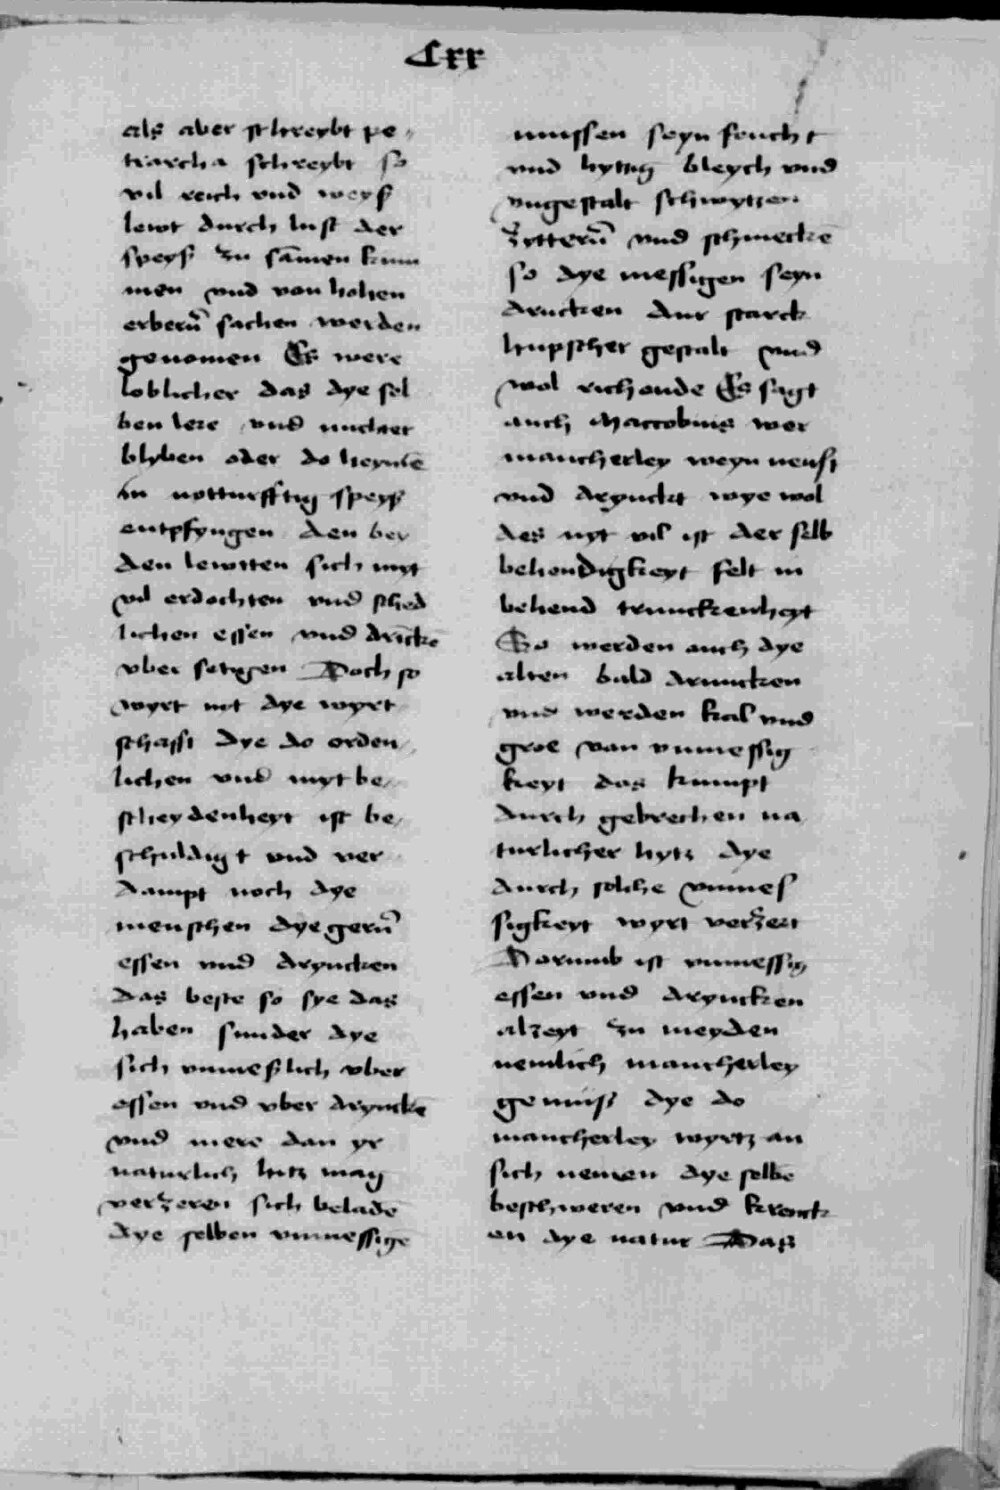 Cxx
als aber schreybt pe
trarcha schreybt so
vil reich vnd weyß
lewt durch lust der
speyß zu samen kum
men vnd von hohen
erberñ sachen werden
genomen Es were
loblicher das dye sel
ben lere vnd nuchter
blyben oder do heymē
in notturfftig speyß
entpfyngen den bey
den lewtten sich myt
vil erdochten vnd sched
lichen essen vnd drickē
vber setigen Doch so
wyrt nit dye wyrt
schafft dye do orden
lichen vnd myt be
scheydenheyt ist be
schuldigt vnd ver
dampt noch dye
menschen dye gerñ
essen vnd dryncken
das beste so sye das
haben sunder dye
sich vnmeßlich vber
essen vnd vber drynckē
vnd mere dan yr
naturlich hitz mag
verzeren sich beladē
dye selben vnmessigē
mussen seyn feucht
vnd hyttig bleych vnd
vngestalt schwytzen
zytterñ vnd schmeckē
so dye messigen seyn
drucken dur starck
hupscher gestalt vnd
wol richende Es sagt
auch Macrobius wer
mancherley weyn neust
vnd drynckt wye wol
des nyt vil ist der selb
behendigkeyt felt in
behend trunckenheyt
So werden auch dye
alten bald druncken
vnd werden kal vnd
groe von vnmessig
keyt das kumpt
durch gebrechen na
turlicher hytz dye
durch solche vnmes
sigkeyt wyrt verzert
Dorumb ist vnmessig
essen vnd dryncken
alzeyt zu meyden
nemlich mancherley
genuiß dye do
mancherley wyrtz an
sich nemen dye selbē
beschweren vnd krenck
en dye natur Das